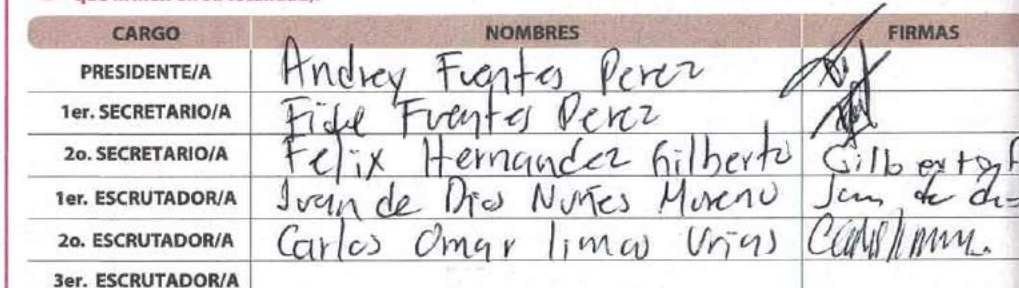 CARGO NOMBRES FIRMAS
PRESIDENTE/A Andrey Fuentes Perez
1er. SECRETARIO/A Fuentes Perez
2o. SECRETARIO/A Felix Hernandez Gilberto
1er. ESCRUTADOR/A Ivan de Dios Nuñes Moreno
2o. ESCRUTADOR/A Carlos Omar limas Urias
3er. ESCRUTADOR/A